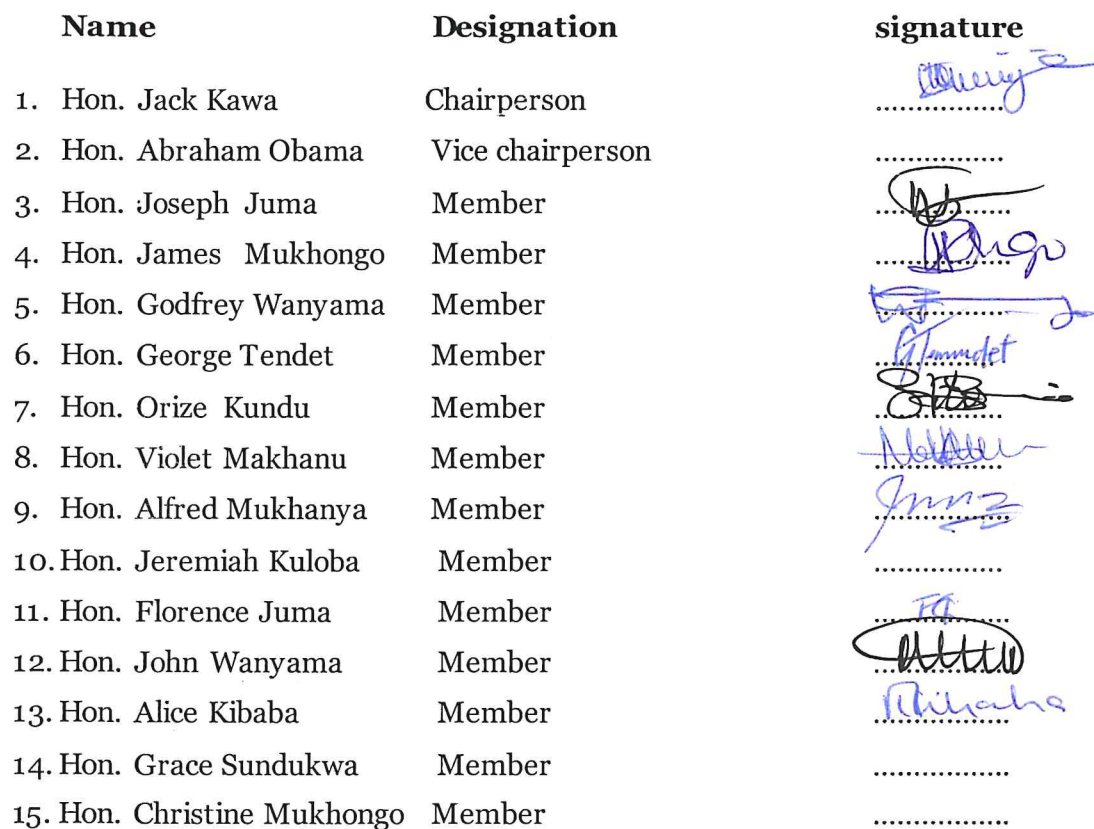 Name Designation signature
1. Hon. Jack Kawa Chairperson ................
2. Hon. Abraham Obama Vice chairperson ................
3. Hon. Joseph Juma Member ................
4. Hon. James Mukhongo Member ................
5. Hon. Godfrey Wanyama Member ................
6. Hon. George Tendet Member ................
7. Hon. Orize Kundu Member ................
8. Hon. Violet Makhanu Member ................
9. Hon. Alfred Mukhanya Member ................
10. Hon. Jeremiah Kuloba Member ................
11. Hon. Florence Juma Member ................
12. Hon. John Wanyama Member ................
13. Hon. Alice Kibaba Member ................
14. Hon. Grace Sundukwa Member ................
15. Hon. Christine Mukhongo Member ................